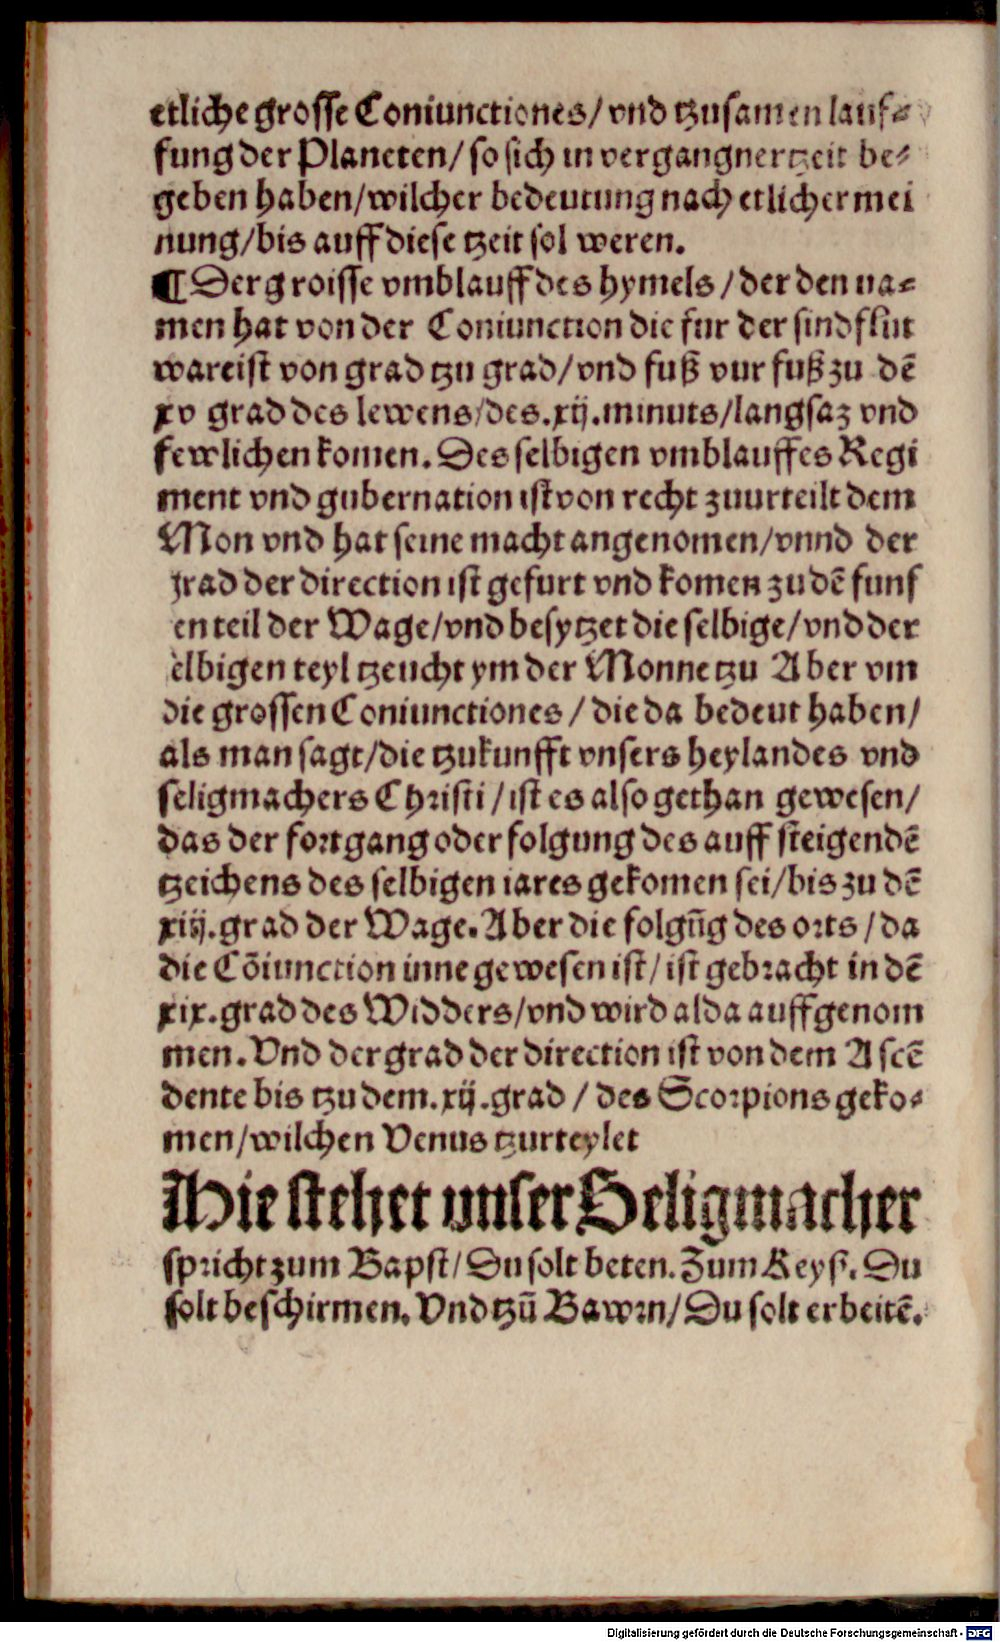 etliche grosse Coniunctiones/ vnd tzusamen lauf⸗
fung der Planeten/ so sich in vergangner tzeit be⸗
geben haben/wilcher bedeutung nach etlicher mei
nung/bis auff diese tzeit sol weren.
¶ Der groisse vmblauff des hymels / der den na⸗
men hat von der Coniunction die fur der sindflut
war eist von grad tzu grad/vnd fuß vur fuß zu dē
xv grad des lewens/des.xij.minuts/langsaz vnd
fewlichen komen. Des selbigen vmblauffes Regi
ment vnd gubernation ist von recht zuurteilt dem
Mon vnd hat seine macht angenomen/vnnd der
grad der direction ist gefurt vnd komen zu dē funf
en teil der Wage/vnd besytzet die selbige/vnd der
elbigen teyl tzeucht ym der Monne tzu Aber vm
die grossen Coniunctiones / die da bedeut haben/
als man sagt/die tzukunfft vnsers heylandes vnd
seligmachers Christi / ist es also gethan gewesen/
das der fortgang oder folgung des auff steigendē
tzeichens des selbigen iares gekomen sei/bis zu dē
xiij.grad der Wage. Aber die folgūg des orts / da
die Cōiunction inne gewesen ist/ ist gebracht in dē
xix.grad des Widders/vnd wird alda auffgenom
men. Vnd der grad der direction ist von dem Ascē
dente bis tzu dem.xij.grad / des Scorpions geko⸗
men/wilchen Venus tzurteylet
Hie stehet vnser Seligmacher
spricht zum Bapst/ Du solt beten. Zum Keyß. Du
solt beschirmen. Vnd tzū Bawrn/ Du solt erbeitē.
Digitalisierung gefördert durch die Deutsche Forschungsgemeinschaft - DFG